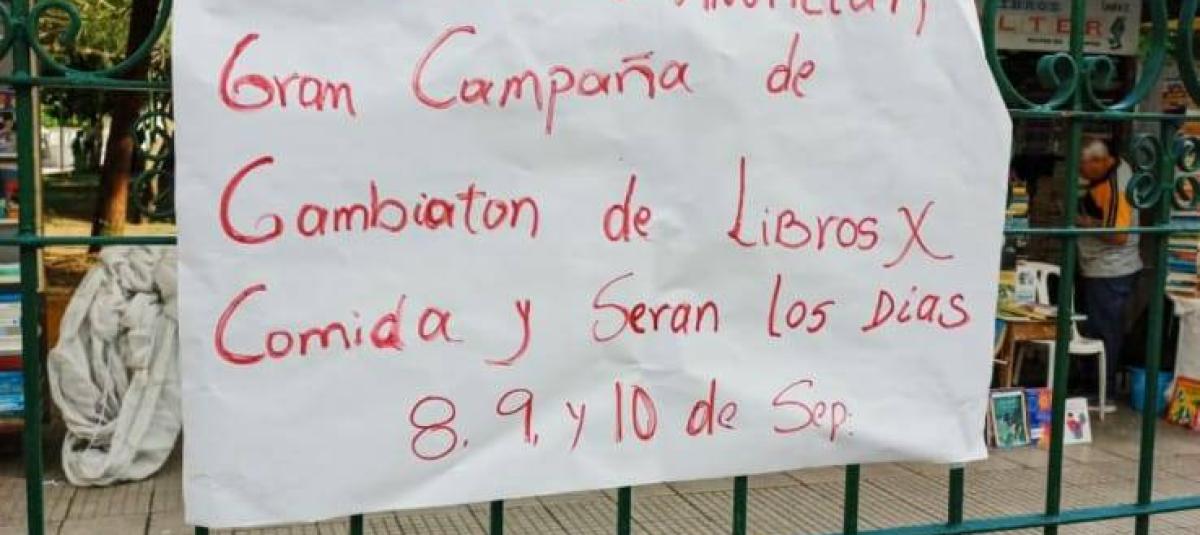 Gran Campaña de
Cambiaton de Libros X
Comida y Seran los Dias
8, 9, y 10 de Sep.
LTER